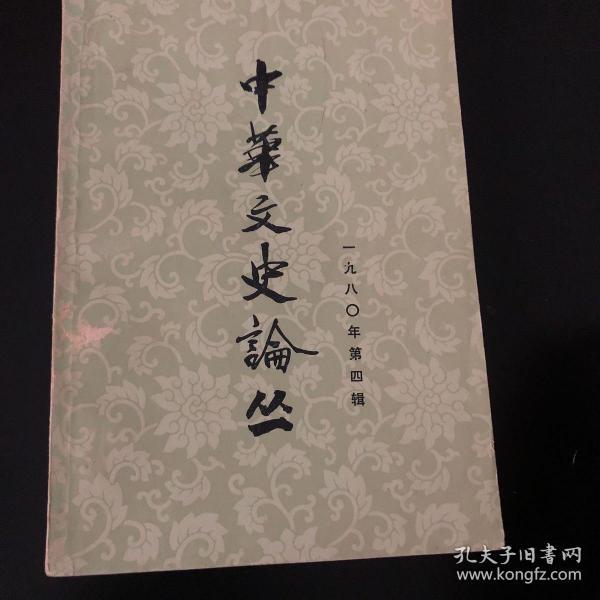 中華文史論丛
一九八〇年第四辑
孔夫子旧書网
www.kongfz.com